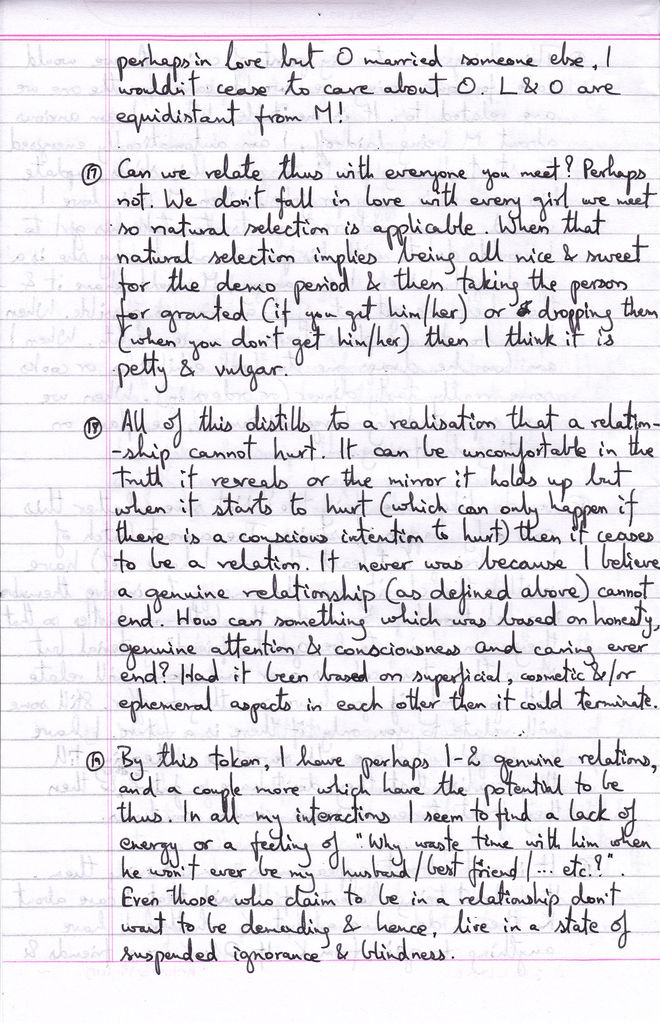 perhaps in love but O married someone else, I
wouldn't cease to care about O. L & O are
equidistant from M!
(17) Can we relate thus with everyone you meet? Perhaps
not. We don't fall in love with every girl we meet
so natural selection is applicable. When that
natural selection implies being all nice & sweet
for the demo period & then taking the person
for granted (if you get him/her) or dropping them
(when you don't get him/her) then I think it is
petty & vulgar.
(18) All of this distills to a realisation that a relation-
-ship cannot hurt. It can be uncomfortable in the
truth it reveals or the mirror it holds up but
when it starts to hurt (which can only happen if
there is a conscious intention to hurt) then it ceases
to be a relation. It never was because I believe
a genuine relationship (as defined above) cannot
end. How can something which was based on honesty,
genuine attention & consciousness and caring ever
end? Had it been based on superficial, cosmetic &/or
ephemeral aspects in each other then it could terminate.
(19) By this token, I have perhaps 1-2 genuine relations,
and a couple more which have the potential to be
thus. In all my interactions I seem to find a lack of
energy or a feeling of "Why waste time with him when
he won't ever be my husband/best friend/... etc.?".
Even those who claim to be in a relationship don't
want to be demanding & hence, live in a state of
suspended ignorance & blindness.